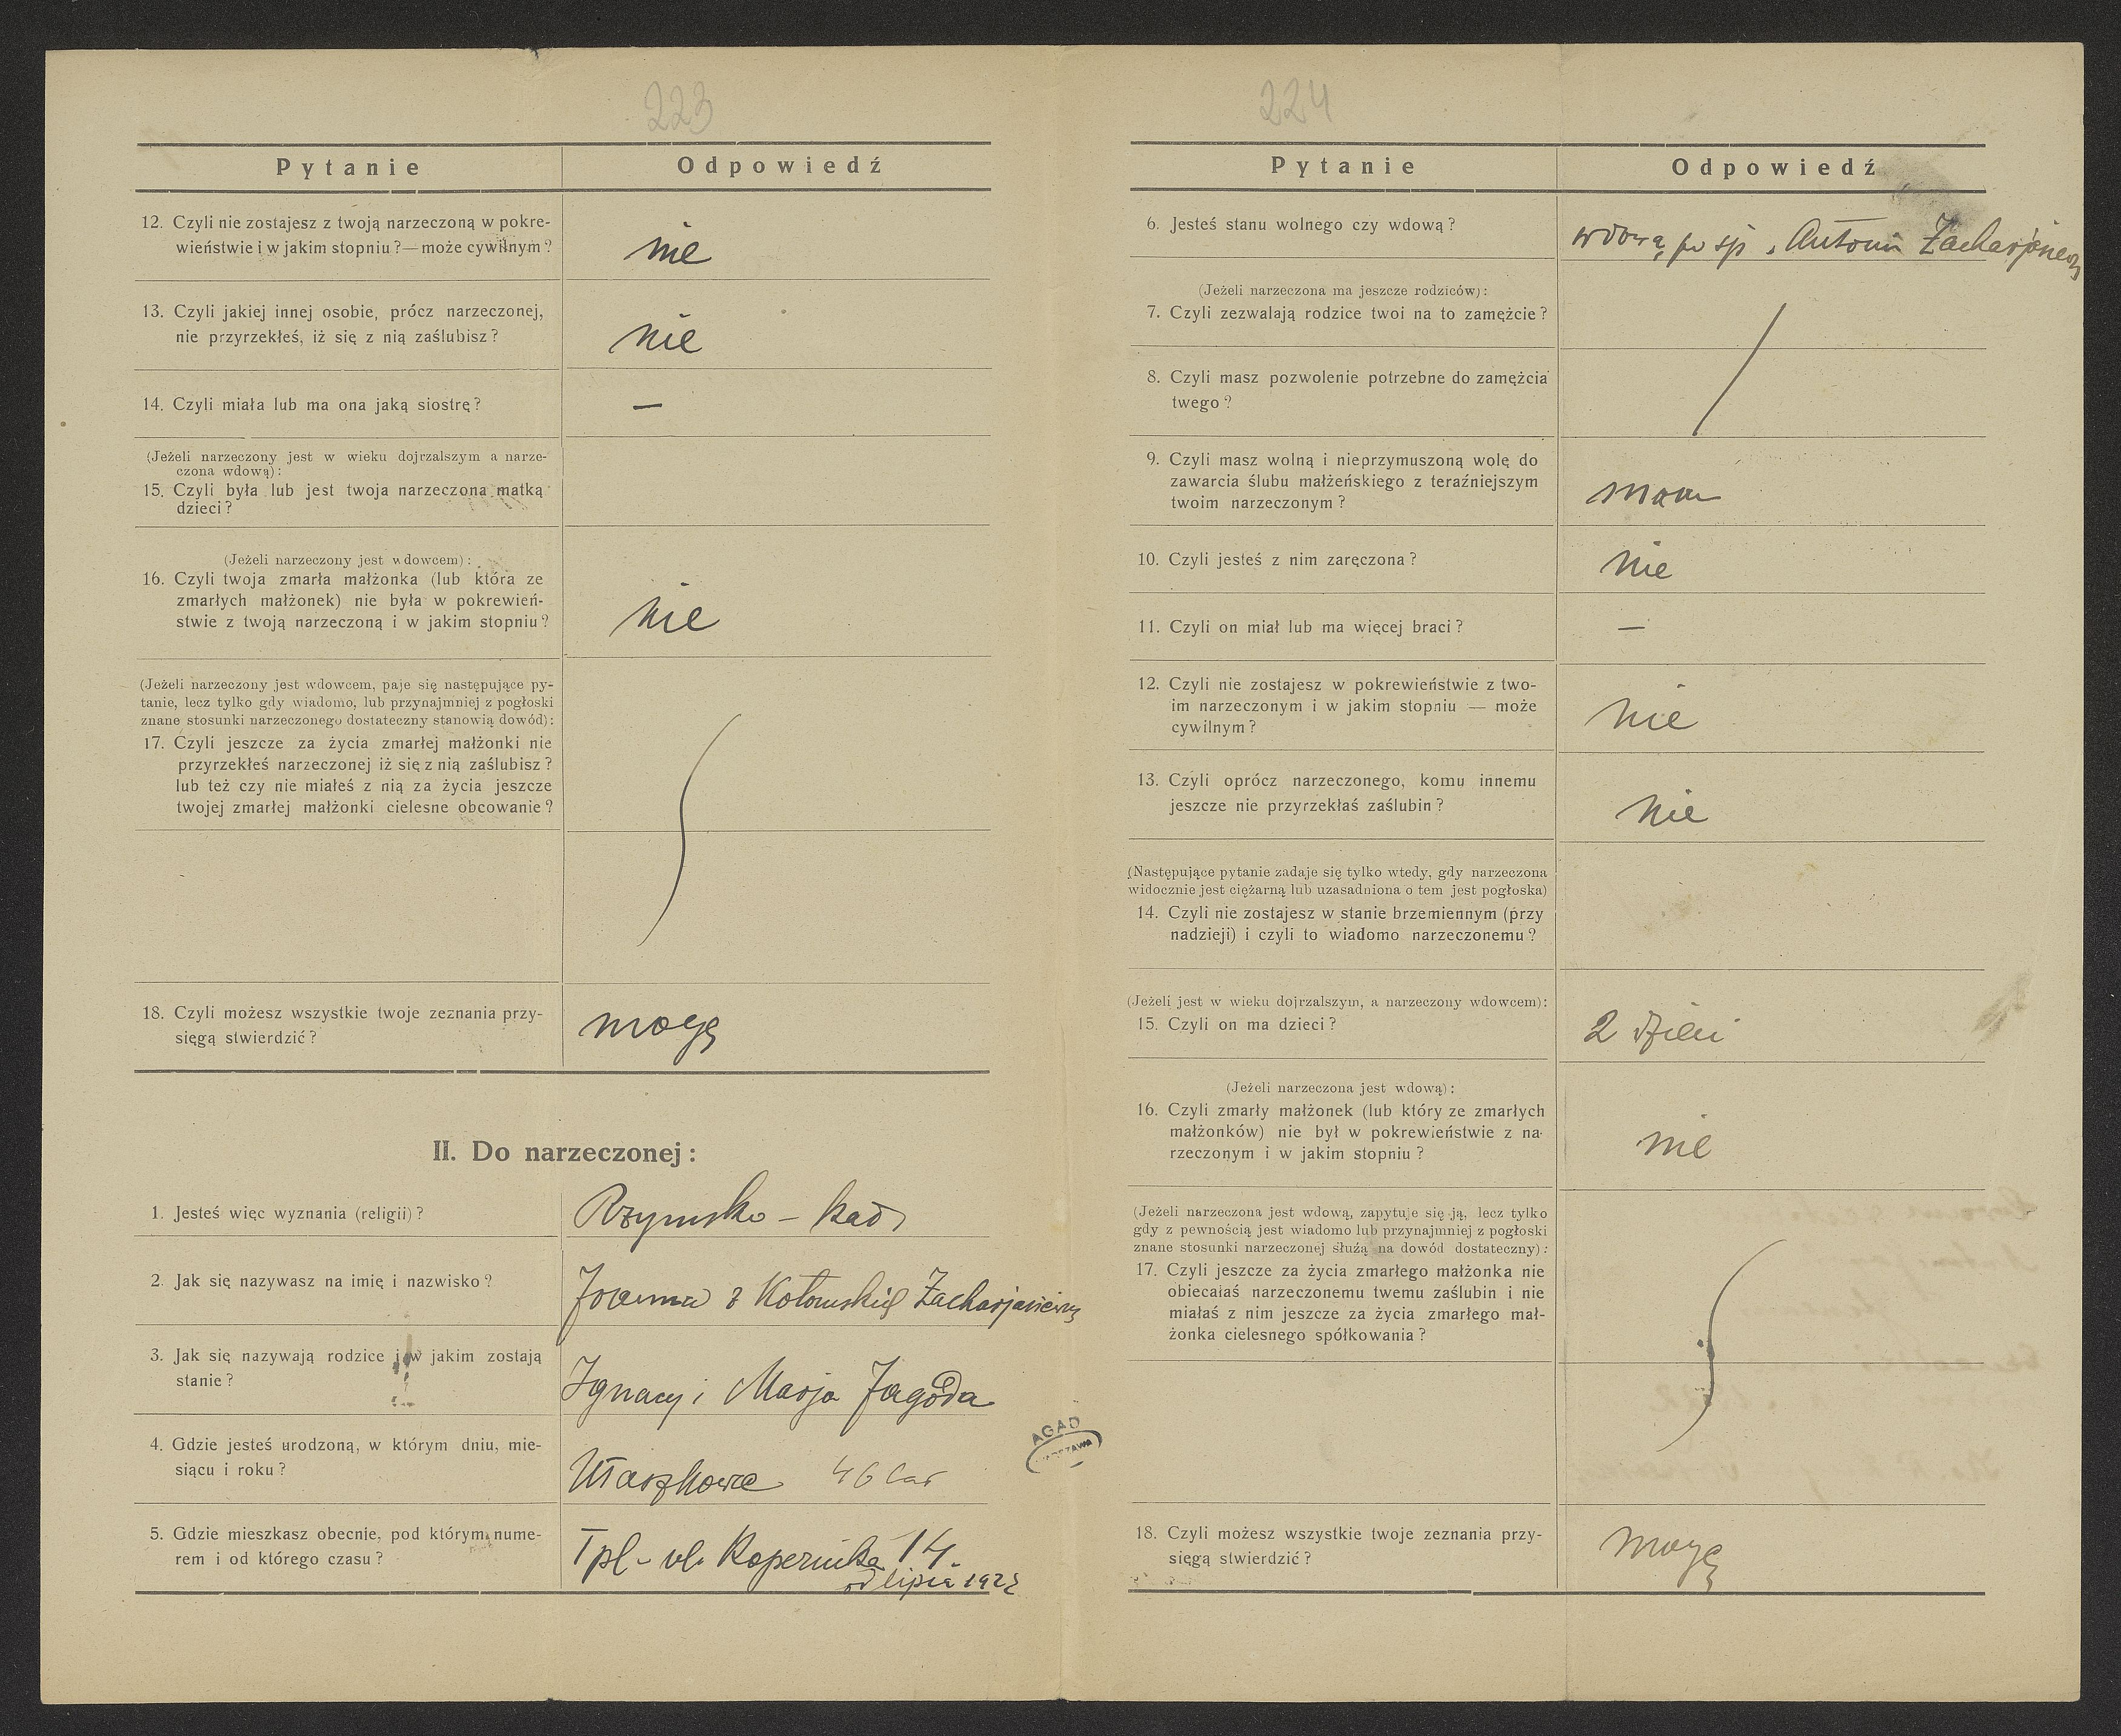 223
Pytanie Odpowiedź
12. Czyli nie zostajesz z twoją narzeczoną w pokre-
wieństwie i w jakim stopniu?—może cywilnym?
nie
13. Czyli jakiej innej osobie, prócz narzeczonej,
nie przyrzekłeś, iż się z nią zaślubisz?
nie
14. Czyli miała lub ma ona jaką siostrę?
—
(Jeżeli narzeczony jest w wieku dojrzalszym a narze-
czona wdową):
15. Czyli była lub jest twoja narzeczona matką
dzieci?
(Jeżeli narzeczony jest wdowcem):
16. Czyli twoja zmarła małżonka (lub która ze
zmarłych małżonek) nie była w pokrewień-
stwie z twoją narzeczoną i w jakim stopniu?
nie
(Jeżeli narzeczony jest wdowcem, paje się następujące py-
tanie, lecz tylko gdy wiadomo, lub przynajmniej z pogłoski
znane stosunki narzeczonego dostateczny stanowią dowód):
17. Czyli jeszcze za życia zmarłej małżonki nie
przyrzekłeś narzeczonej iż się z nią zaślubisz?
lub też czy nie miałeś z nią za życia jeszcze
twojej zmarłej małżonki cielesne obcowanie?
18. Czyli możesz wszystkie twoje zeznania przy-
sięgą stwierdzić?
mogę
II. Do narzeczonej:
1. Jesteś więc wyznania (religii)?
Rzymsko – kat
2. Jak się nazywasz na imię i nazwisko?
Joanna z Kotowskich Zacharjasiewicz
3. Jak się nazywają rodzice i w jakim zostają
stanie?
Ignacy i Marja Jagoda
4. Gdzie jesteś urodzoną, w którym dniu, mie-
siącu i roku?
Ułaszkowce 46 lat
5. Gdzie mieszkasz obecnie, pod którym nume-
rem i od którego czasu?
Tpl – ul. Kopernika 14.
od lipca 1922
AGAD
WARSZAWA
224
Pytanie Odpowiedź
6. Jesteś stanu wolnego czy wdową?
wdową po śp. Antonim
(Jeżeli narzeczona ma jeszcze rodziców):
7. Czyli zezwalają rodzice twoi na to zamężcie?
8. Czyli masz pozwolenie potrzebne do zamężcia
twego?
9. Czyli masz wolną i nieprzymuszoną wolę do
zawarcia ślubu małżeńskiego z teraźniejszym
twoim narzeczonym?
mam
10. Czyli jesteś z nim zaręczona?
nie
11. Czyli on miał lub ma więcej braci?
—
12. Czyli nie zostajesz w pokrewieństwie z two-
im narzeczonym i w jakim stopniu — może
cywilnym?
nie
13. Czyli oprócz narzeczonego, komu innemu
jeszcze nie przyrzekłaś zaślubin?
nie
(Następujące pytanie zadaje się tylko wtedy, gdy narzeczona
widocznie jest ciężarną lub uzasadniona o tem jest pogłoska)
14. Czyli nie zostajesz w stanie brzemiennym (przy
nadzieji) i czyli to wiadomo narzeczonemu?
(Jeżeli jest w wieku dojrzalszym, a narzeczony wdowcem):
15. Czyli on ma dzieci?
2 dzieci
(Jeżeli narzeczona jest wdową):
16. Czyli zmarły małżonek (lub który ze zmarłych
małżonków) nie był w pokrewieństwie z na-
rzeczonym i w jakim stopniu?
nie
(Jeżeli narzeczona jest wdową, zapytuje się ją, lecz tylko
gdy z pewnością jest wiadomo lub przynajmniej z pogłoski
znane stosunki narzeczonej służą na dowód dostateczny):
17. Czyli jeszcze za życia zmarłego małżonka nie
obiecałaś narzeczonemu twemu zaślubin i nie
miałaś z nim jeszcze za życia zmarłego mał-
żonka cielesnego spółkowania?
18. Czyli możesz wszystkie twoje zeznania przy-
sięgą stwierdzić?
mogę